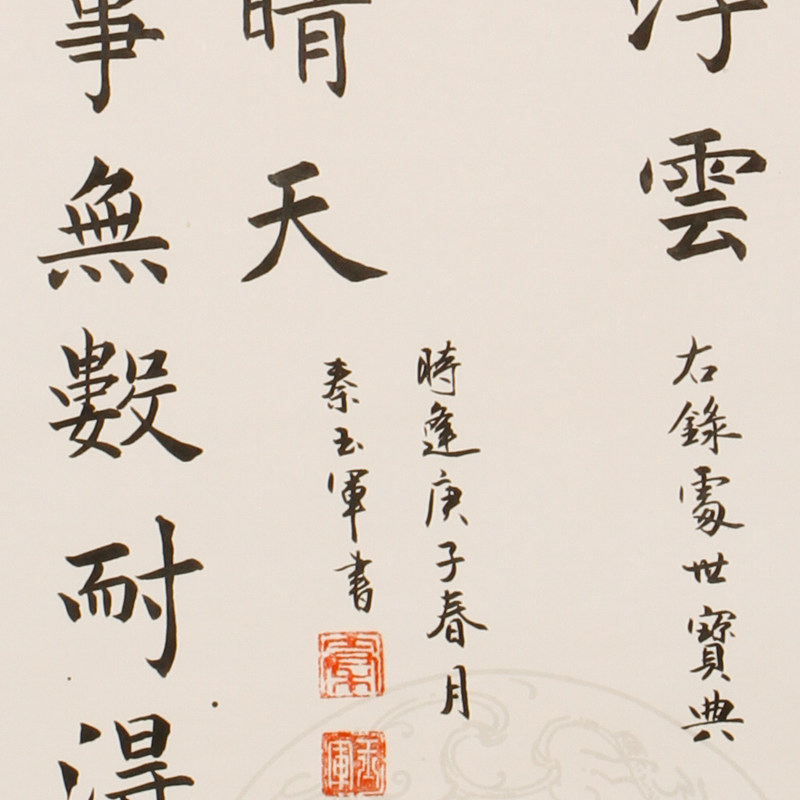 浮雲
右錄處世寶典
時逢庚子春月
晴天
秦玉軍書
秦
玉軍
事無數耐得